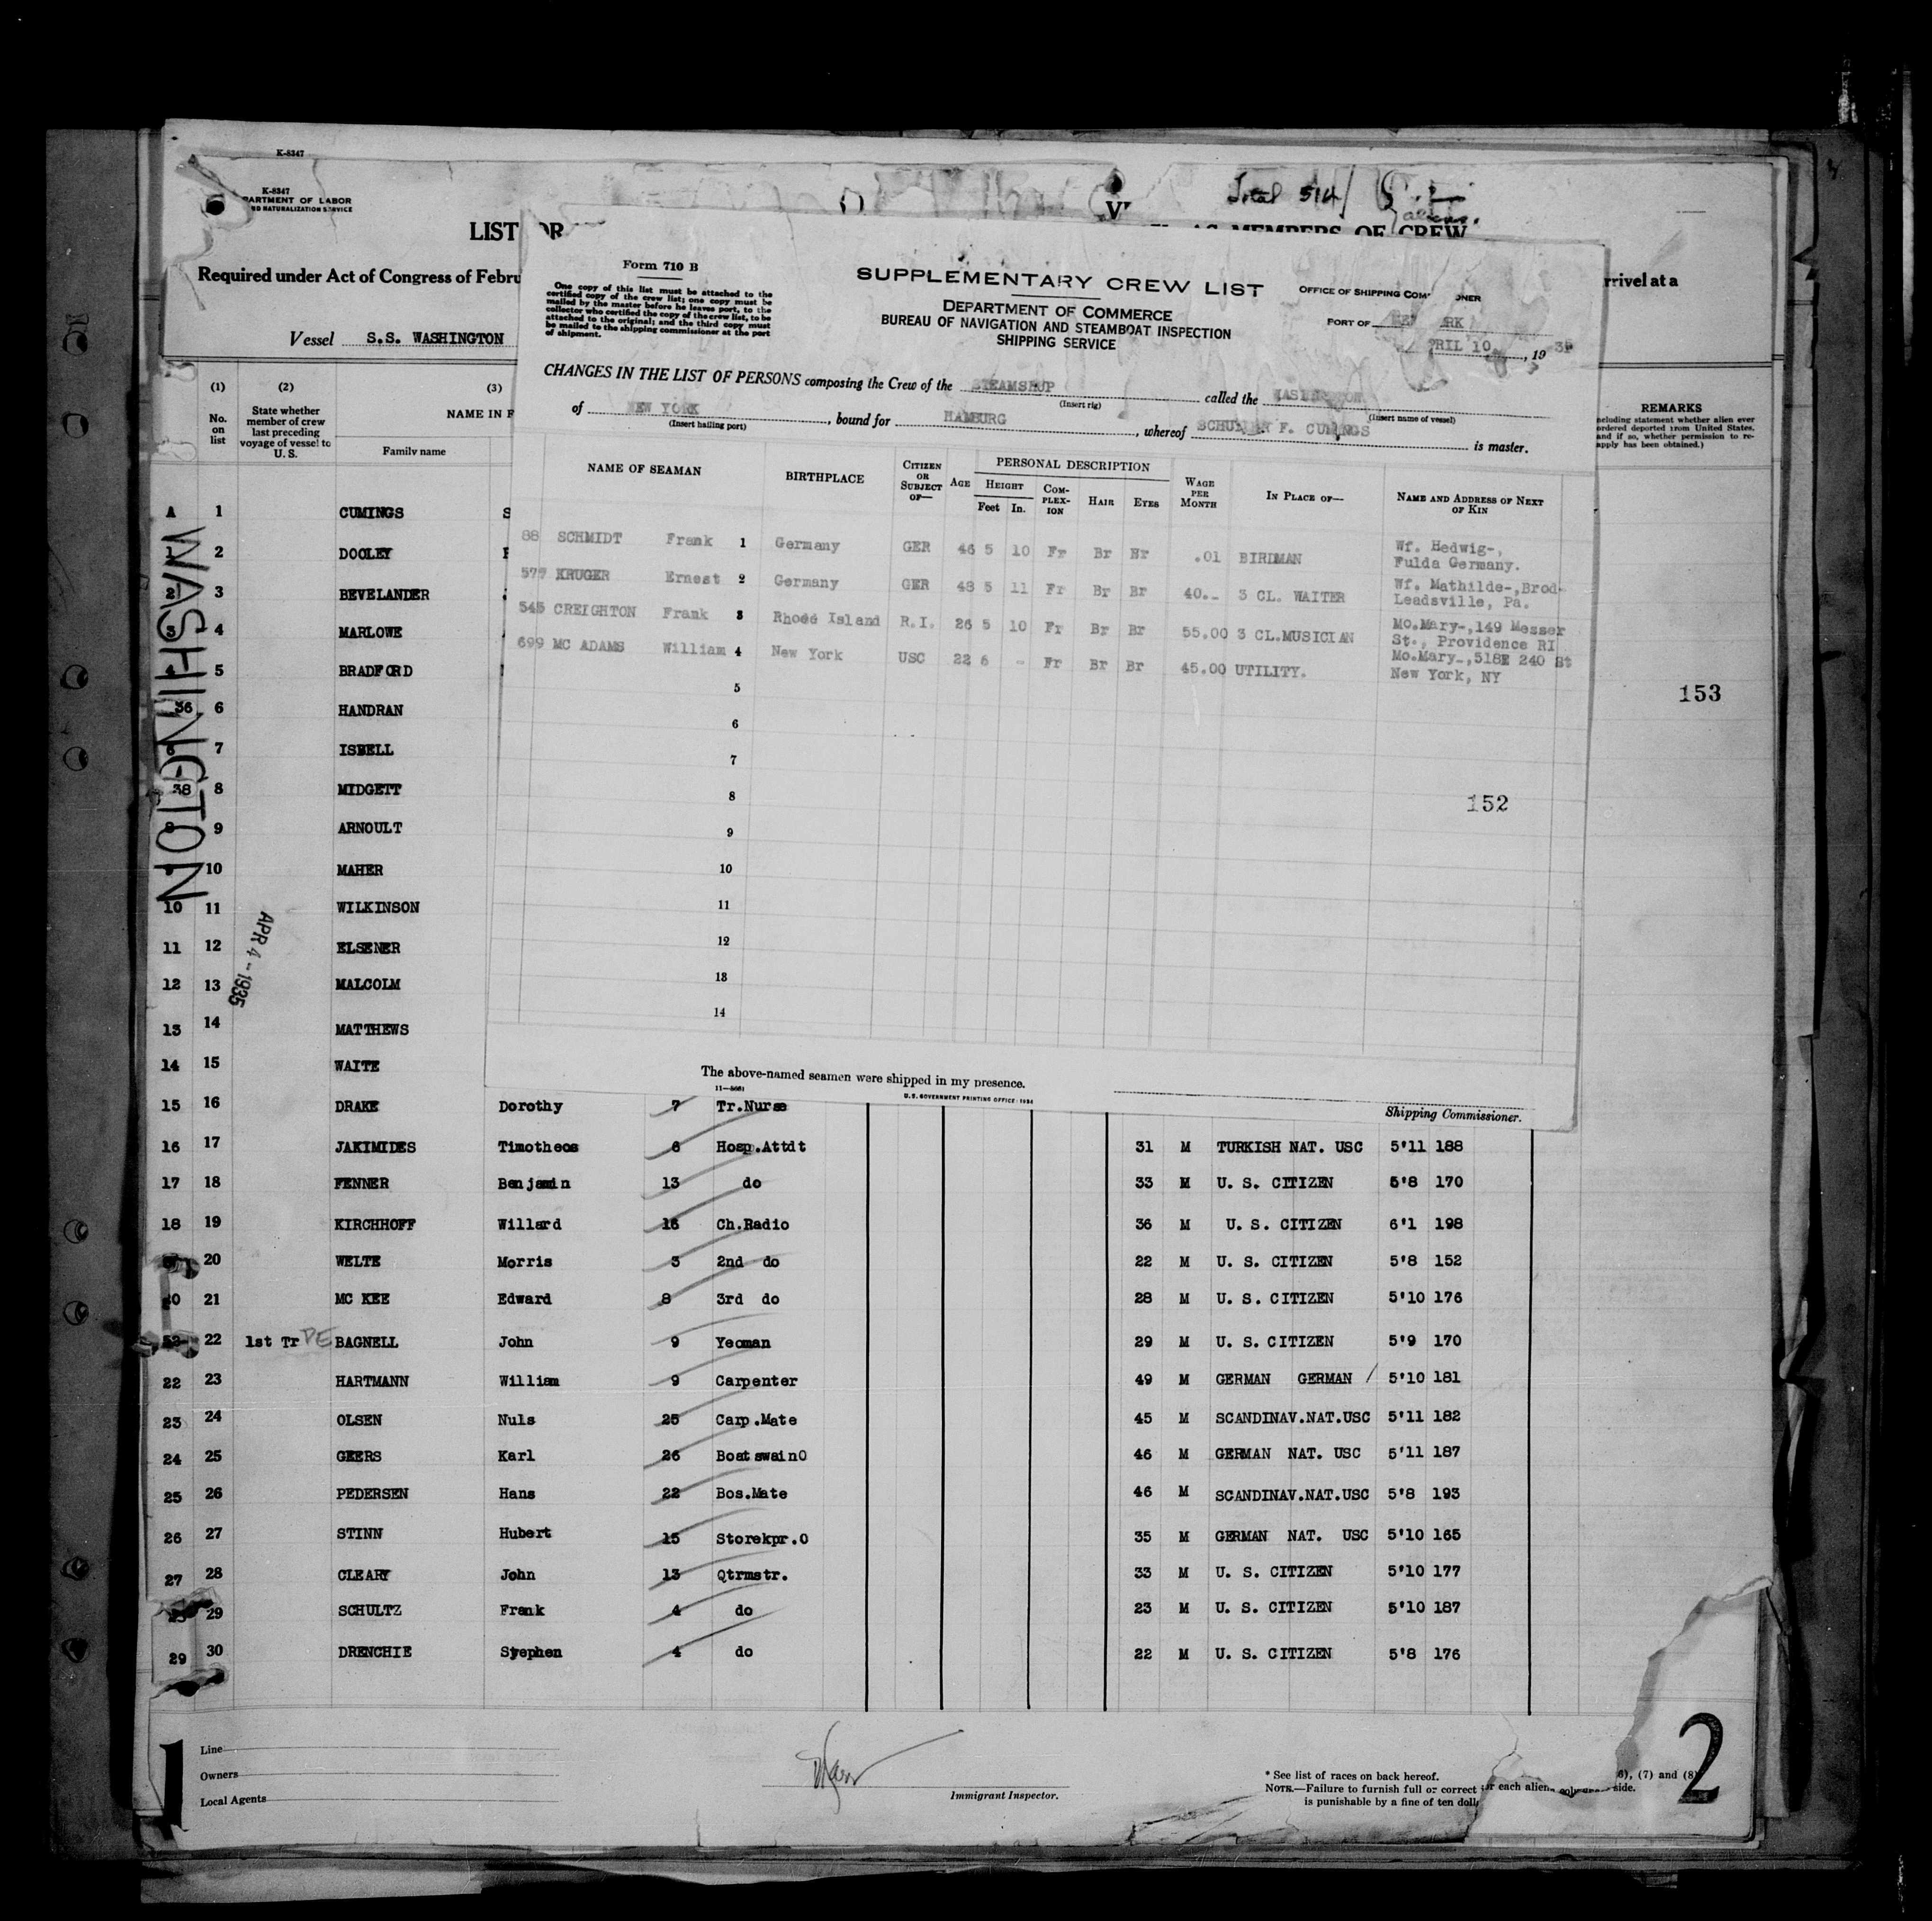 K-8347
K-8347
PARTMENT OF LABOR
ND NATURALIZATION SERVICE
Total 514
aliens.
LIST OR
AS MEMBERS OF CREW
Required under Act of Congress of Febru
rrival at a
Vessel S.S. WASHINGTON
(1) (2) (3)
No. on list
State whether member of crew last preceding voyage of vessel to U. S.
NAME IN F
Family name
REMARKS
ncluding statement whether alien ever
ordered deported from United States,
and if so, whether permission to re-
apply has been obtained.)
WASHINGTON
APR 4 - 1935
Form 710 B
One copy of this list must be attached to the
certified copy of the crew list; one copy must be
mailed by the master before he leaves port, to the
collector who certified the copy of the crew list, to be
attached to the original; and the third copy must
be mailed to the shipping commissioner at the port
of shipment.
SUPPLEMENTARY CREW LIST
DEPARTMENT OF COMMERCE
BUREAU OF NAVIGATION AND STEAMBOAT INSPECTION
SHIPPING SERVICE
OFFICE OF SHIPPING COM ONER
PORT OF RK
PRIL 10 , 19
CHANGES IN THE LIST OF PERSONS composing the Crew of the STEAMSHIP called the WASHINGTON
(Insert rig) (Insert name of vessel)
of NEW YORK , bound for HAMBURG , whereof F. CUMINGS is master.
(Insert hailing port)
NAME OF SEAMAN BIRTHPLACE CITIZEN OR SUBJECT OF— AGE PERSONAL DESCRIPTION WAGE PER MONTH IN PLACE OF— NAME AND ADDRESS OF NEXT OF KIN
HEIGHT COM-PLEX-ION HAIR EYES
Feet In.
88 SCHMIDT Frank 1 Germany GER 46 5 10 Fr Br Br .01 BIRDMAN Wf. Hedwig-,
Fulda Germany.
577 KRUGER Ernest 2 Germany GER 43 5 11 Fr Br Br 40.- 3 CL. WAITER Wf. Mathilde-,Brod-
Leadsville, Pa.
545 CREIGHTON Frank 3 Rhode Island R.I. 26 5 10 Fr Br Br 55.00 3 CL.MUSICIAN Mo.Mary-,149 Messer
St., Providence RI
699 MC ADAMS William 4 New York USC 22 6 - Fr Br Br 45.00 UTILITY. Mo.Mary-,518E 240 St
New York, NY
5
6
7
8
9
10
11
12
13
14
152
153
The above-named seamen were shipped in my presence.
11—8661
U.S. GOVERNMENT PRINTING OFFICE: 1934
Shipping Commissioner.
A 1 CUMINGS S
2 DOOLEY
2 3 BEVELANDER
3 4 MARLOWE
4 5 BRADFORD
36 6 HANDRAN
7 ISBELL
38 8 MIDGETT
9 ARNOULT
10 MAHER
10 11 WILKINSON
11 12 ELSENER
12 13 MALCOLM
13 14 MATTHEWS
14 15 WAITE
15 16 DRAKE Dorothy 7 Tr.Nurse
16 17 JAKIMIDES Timotheos 6 Hosp.Attdt 31 M TURKISH NAT. USC 5'11 188
17 18 FENNER Benjamin 13 do 33 M U. S. CITIZEN 5'8 170
18 19 KIRCHHOFF Willard 16 Ch.Radio 36 M U. S. CITIZEN 6'1 198
20 WELTE Morris 3 2nd do 22 M U. S. CITIZEN 5'8 152
21 MC KEE Edward 8 3rd do 28 M U. S. CITIZEN 5'10 176
22 1st Tr PE BAGNELL John 9 Yeoman 29 M U. S. CITIZEN 5'9 170
22 23 HARTMANN William 9 Carpenter 49 M GERMAN GERMAN / 5'10 181
23 24 OLSEN Nuls 25 Carp.Mate 45 M SCANDINAV.NAT.USC 5'11 182
24 25 GEERS Karl 26 Boatswain0 46 M GERMAN NAT. USC 5'11 187
25 26 PEDERSEN Hans 22 Bos.Mate 46 M SCANDINAV.NAT.USC 5'8 193
26 27 STINN Hubert 15 Storekpr.0 35 M GERMAN NAT. USC 5'10 165
27 28 CLEARY John 13 Qtrmstr. 33 M U. S. CITIZEN 5'10 177
29 SCHULTZ Frank 4 do 23 M U. S. CITIZEN 5'10 187
29 30 DRENCHIE Syephen 4 do 22 M U. S. CITIZEN 5'8 176
1
2
Line
Owners
Local Agents
Immigrant Inspector.
* See list of races on back hereof.
6), (7) and (8)
NOTE.—Failure to furnish full or correct for each alien side.
is punishable by a fine of ten doll